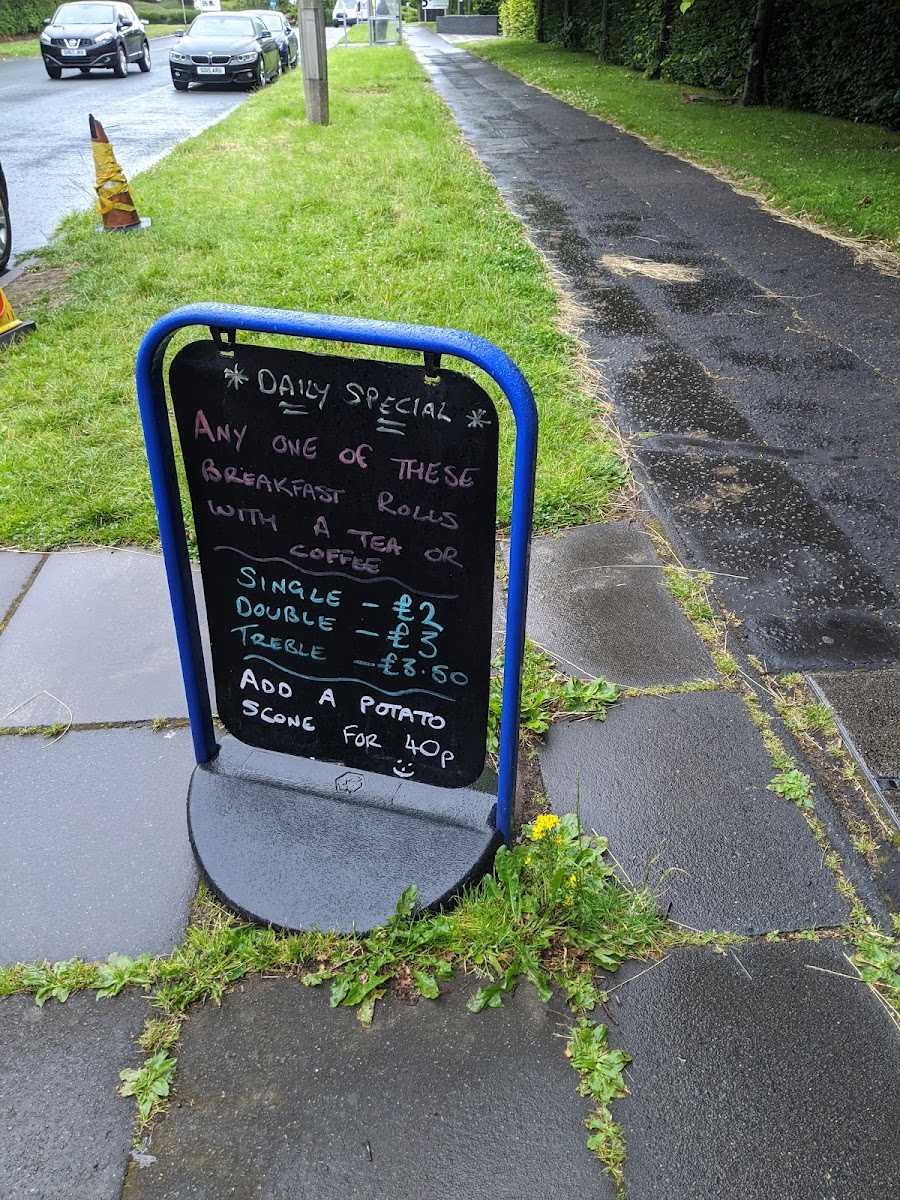 * DAILY SPECIAL *
ANY ONE OF THESE
BREAKFAST ROLLS
WITH A TEA OR
COFFEE
SINGLE - £2
DOUBLE - £3
TREBLE - £3.50
ADD A POTATO
SCONE FOR 40p